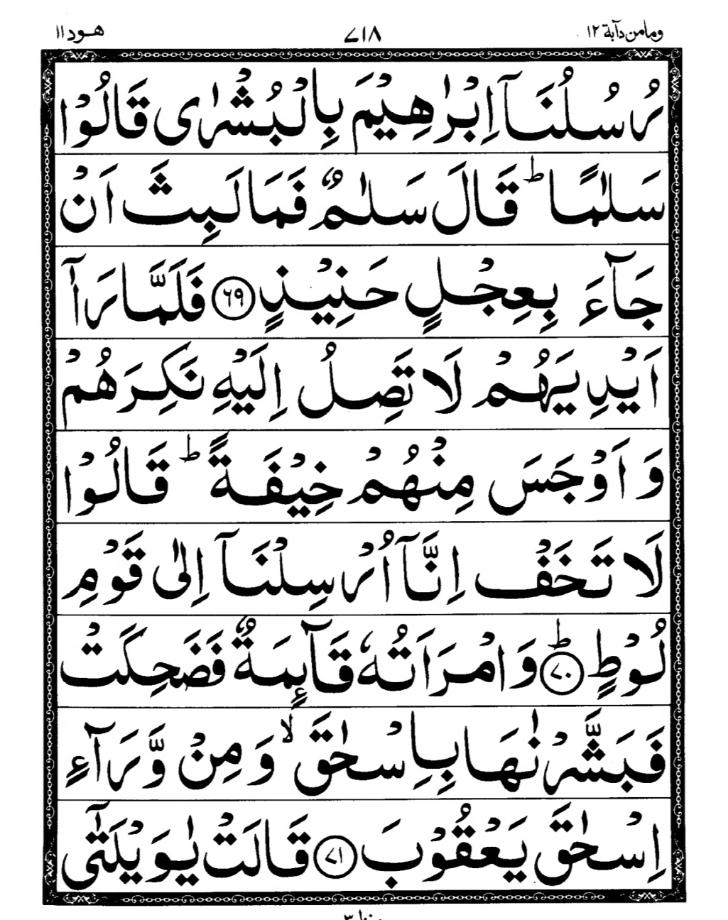 ومامن دآبة ١٢ ٧١٨ هود ١١
رُسُلُنَاۤ اِبْرٰهِيْمَ بِالْبُشْرٰى قَالُوْا
سَلٰمًا ؕ قَالَ سَلٰمٌ فَمَا لَبِثَ اَنْ
جَآءَ بِعِجْلٍ حَنِيْذٍ ﴿۶۹﴾ فَلَمَّا رَاٰۤ
اَيْدِيَهُمْ لَا تَصِلُ اِلَيْهِ نَكِرَهُمْ
وَ اَوْجَسَ مِنْهُمْ خِيْفَةً ؕ قَالُوْا
لَا تَخَفْ اِنَّاۤ اُرْسِلْنَاۤ اِلٰى قَوْمِ
لُوْطٍ ؕ ﴿۷۰﴾ وَ امْرَاَتُهٗ قَآىِٕمَةٌ فَضَحِكَتْ
فَبَشَّرْنٰهَا بِاِسْحٰقَ ۙ وَ مِنْ وَّرَآءِ
اِسْحٰقَ يَعْقُوْبَ ﴿۷۱﴾ قَالَتْ يٰوَيْلَتٰۤى